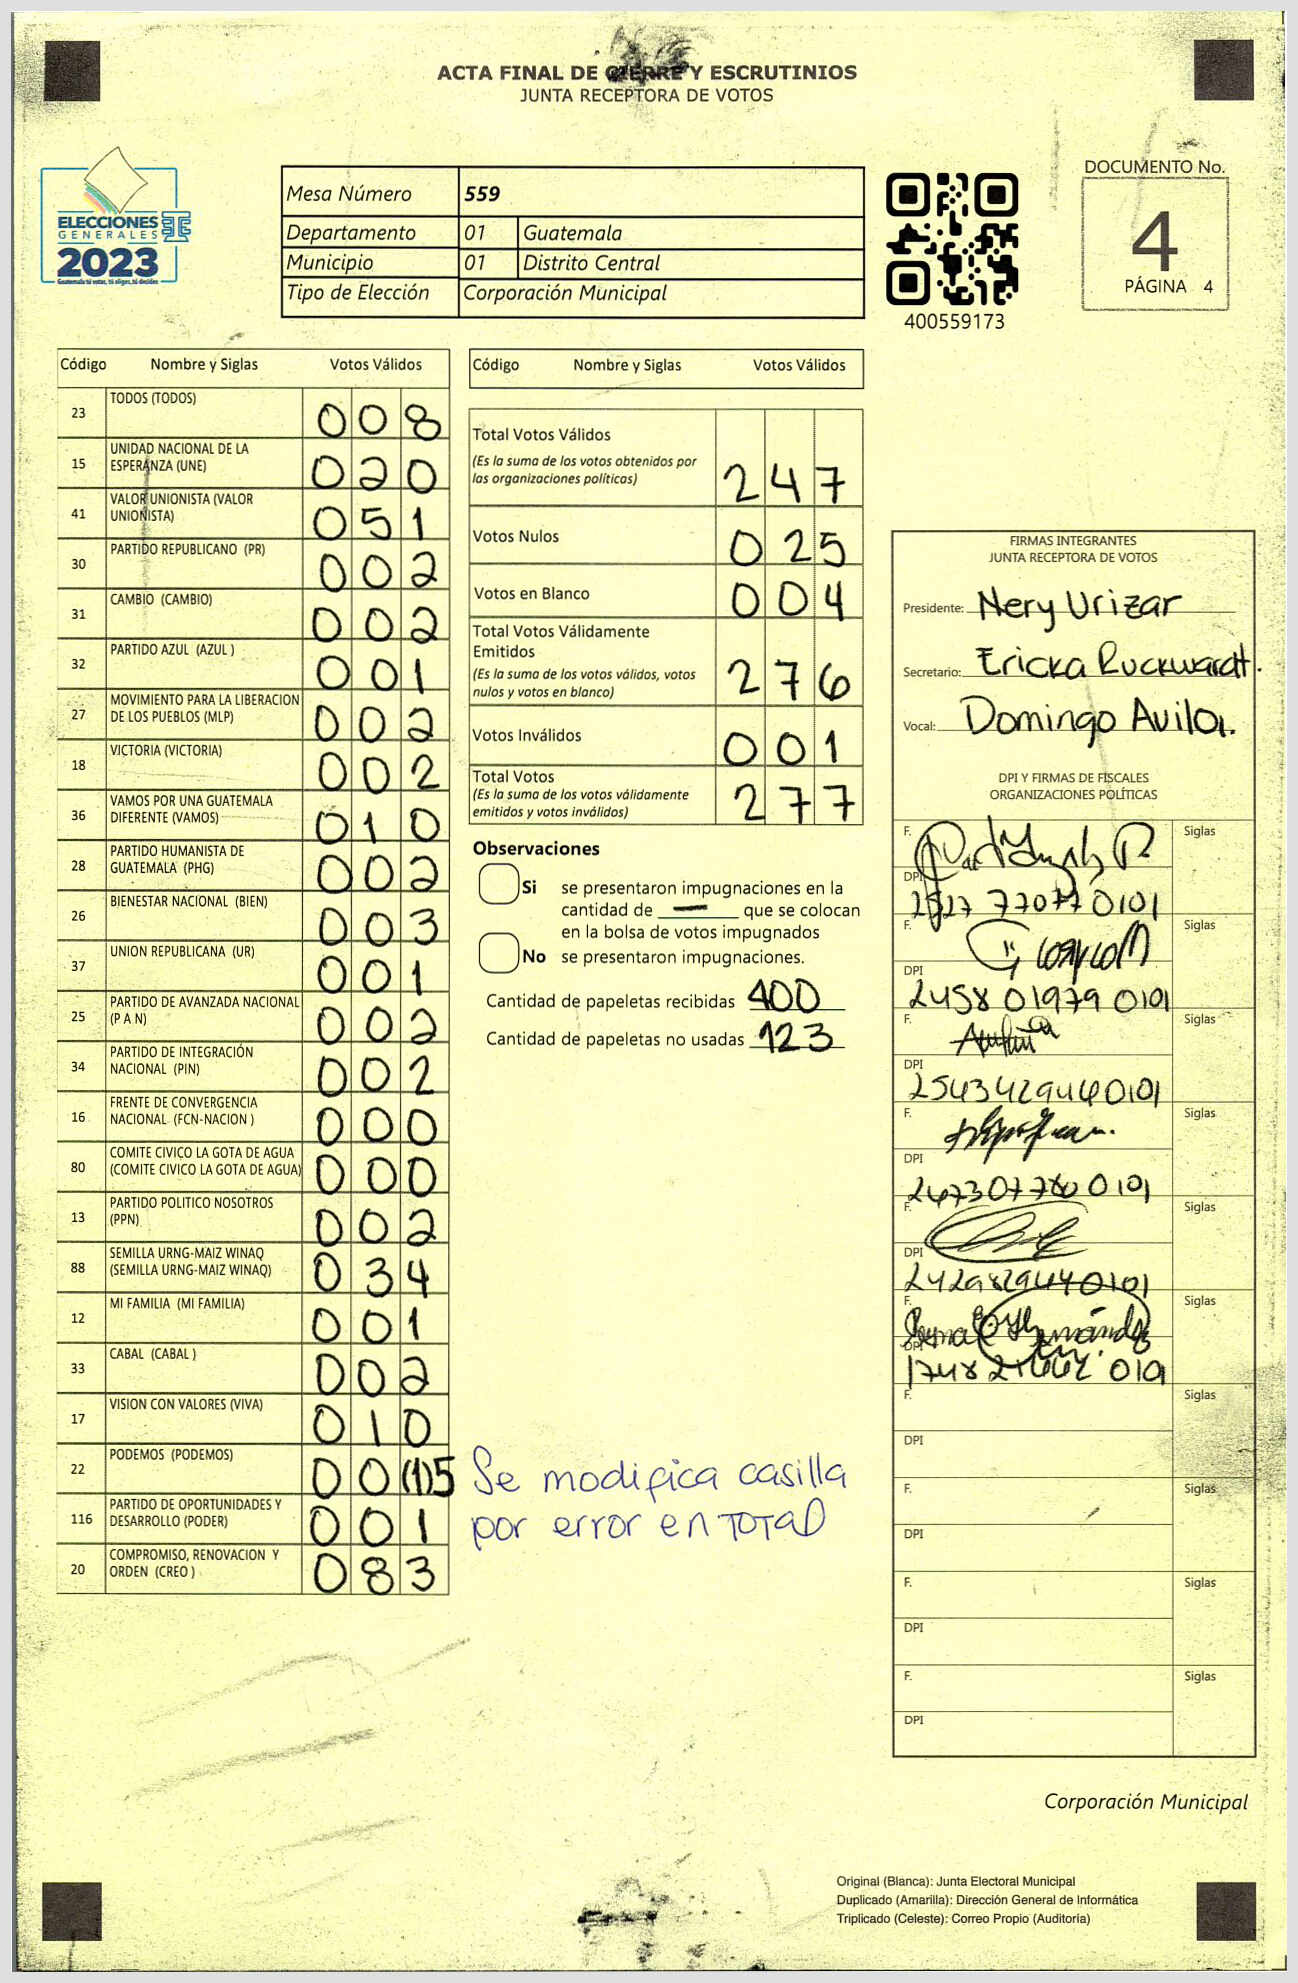 ACTA FINAL DE CIERRE Y ESCRUTINIOS
JUNTA RECEPTORA DE VOTOS
ELECCIONES
GENERALES
2023
Guatemala tú votas, tú eliges, tú decides
Mesa Número 559
Departamento 01 Guatemala
Municipio 01 Distrito Central
Tipo de Elección Corporación Municipal
400559173
DOCUMENTO No.
4
PÁGINA 4
Código Nombre y Siglas Votos Válidos
23 TODOS (TODOS) 008
15 UNIDAD NACIONAL DE LA
ESPERANZA (UNE) 020
41 VALOR UNIONISTA (VALOR
UNIONISTA) 051
30 PARTIDO REPUBLICANO (PR) 002
31 CAMBIO (CAMBIO) 002
32 PARTIDO AZUL (AZUL ) 001
27 MOVIMIENTO PARA LA LIBERACION
DE LOS PUEBLOS (MLP) 002
18 VICTORIA (VICTORIA) 002
36 VAMOS POR UNA GUATEMALA
DIFERENTE (VAMOS) 010
28 PARTIDO HUMANISTA DE
GUATEMALA (PHG) 002
26 BIENESTAR NACIONAL (BIEN) 003
37 UNION REPUBLICANA (UR) 001
25 PARTIDO DE AVANZADA NACIONAL
(P A N) 002
34 PARTIDO DE INTEGRACIÓN
NACIONAL (PIN) 002
16 FRENTE DE CONVERGENCIA
NACIONAL (FCN-NACION ) 000
80 COMITE CIVICO LA GOTA DE AGUA
(COMITE CIVICO LA GOTA DE AGUA) 000
13 PARTIDO POLITICO NOSOTROS
(PPN) 002
88 SEMILLA URNG-MAIZ WINAQ
(SEMILLA URNG-MAIZ WINAQ) 034
12 MI FAMILIA (MI FAMILIA) 001
33 CABAL (CABAL ) 002
17 VISION CON VALORES (VIVA) 010
22 PODEMOS (PODEMOS) 00(1)5
116 PARTIDO DE OPORTUNIDADES Y
DESARROLLO (PODER) 001
20 COMPROMISO, RENOVACION Y
ORDEN (CREO ) 083
Código Nombre y Siglas Votos Válidos
Total Votos Válidos
(Es la suma de los votos obtenidos por
las organizaciones políticas) 247
Votos Nulos 025
Votos en Blanco 004
Total Votos Válidamente
Emitidos
(Es la suma de los votos válidos, votos
nulos y votos en blanco) 276
Votos Inválidos 001
Total Votos
(Es la suma de los votos válidamente
emitidos y votos inválidos) 277
Observaciones
Si se presentaron impugnaciones en la
cantidad de — que se colocan
en la bolsa de votos impugnados
No se presentaron impugnaciones.
Cantidad de papeletas recibidas 400
Cantidad de papeletas no usadas 123
Se modifica casilla
por error en TOTAL
FIRMAS INTEGRANTES
JUNTA RECEPTORA DE VOTOS
Presidente: Nery Urizar
Secretario: Ericka Ruckwardt.
Vocal: Domingo Avila.
DPI Y FIRMAS DE FISCALES
ORGANIZACIONES POLÍTICAS
F. Siglas
DPI
F. Siglas
DPI 2458 01979 0101
F. Siglas
DPI
F. Siglas
DPI
F. Siglas
DPI
F. Siglas
DPI
F. Siglas
DPI
F. Siglas
DPI
F. Siglas
DPI
F. Siglas
DPI
Corporación Municipal
Original (Blanca): Junta Electoral Municipal
Duplicado (Amarilla): Dirección General de Informática
Triplicado (Celeste): Correo Propio (Auditoría)